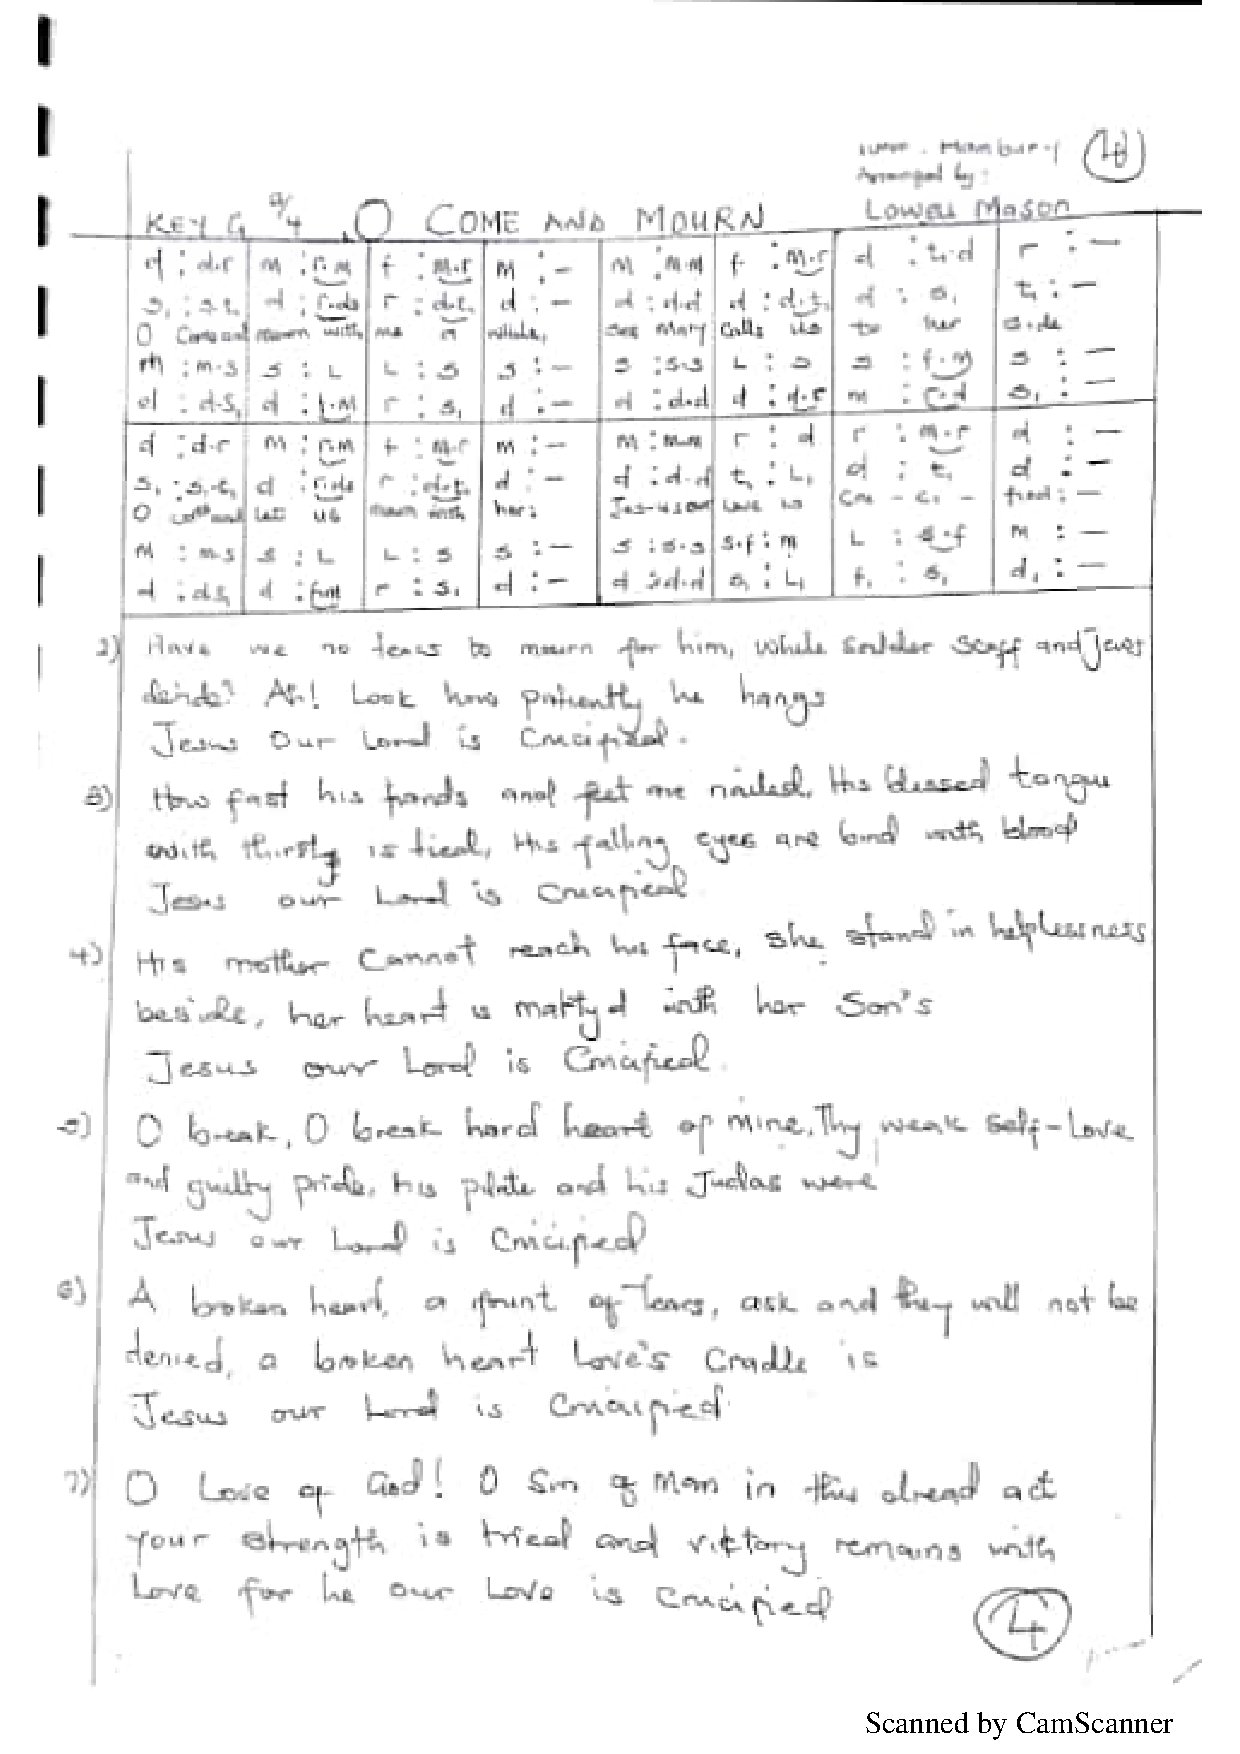 Tune : Hamburg
4
Arranged by :
Lowell Mason
KEY G 3/4 O COME AND MOURN
d : d.r m : r.m f : m.r m : – m : m.m f : m.r d : t₁.d r : –
s₁ : s₁.t₁ d : r.de r : d.t₁ d : – d : d.d d : d.t₁ d : s₁ t₁ : –
O Come and mourn with me a while, See Mary Calls us to her side
m : m.s s : L L : s s : – s : s.s L : s s : f.m s : –
d : d.s₁ d : f.m r : s₁ d : – d : d.d d : d.r m : r.d s₁ : –
d : d.r m : r.m f : m.r m : – m : m.m r : d r : m.r d : –
s₁ : s₁.t₁ d : r.de r : d.t₁ d : – d : d.d t₁ : L₁ d : t₁ d : –
O come and let us mourn with her: Jes-us our Love is Cru - ci - fied : –
m : m.s s : L L : s s : – s : s.s s.f : m L : s.f m : –
d : d.s₁ d : f.m r : s₁ d : – d : d.d : L₁ f₁ : s₁ d₁ : –
2) Have we no tears to mourn for him, While Soldier Scoff and Jews
deride? Ah! Look how patiently he hangs
Jesus Our Lord is Crucified.
3) How fast his hands and feet are nailed, His blessed tongue
with thirsty is tied, His falling eyes are bind with blood
Jesus our Lord is Crucified
4) His mother Cannot reach his face, She stand in helplessness
beside, her heart is martyd with her Son's
Jesus our Lord is Crucified.
5) O break, O break hard heart of mine, Thy weak Self-Love
and guilty pride, His pilate and his Judas were
Jesus our Lord is Crucified
6) A broken heart, a fount of Tears, ask and they will not be
denied, a broken heart Love's Cradle is
Jesus our Lord is Crucified.
7) O Love of God! O Sin of Man in this dread act
your strength is tried and victory remains with
Love for he our Love is Crucified
4
Scanned by CamScanner